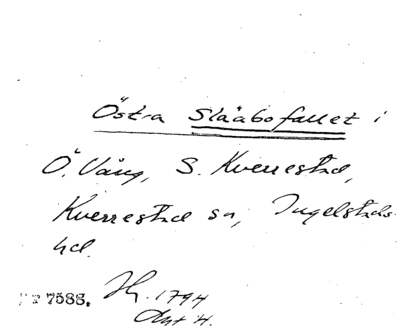 Östra Slååbofallet i
Ö. Vång, S. Kverrestad,
Kverrestad sn, Ingelstads
hd.
7588. Jh. 1794
Akt 4.